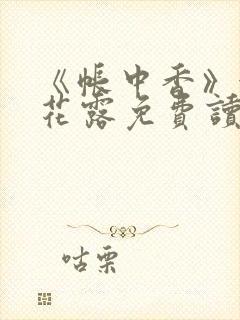 《帳中香》
花露免費讀
咕栗